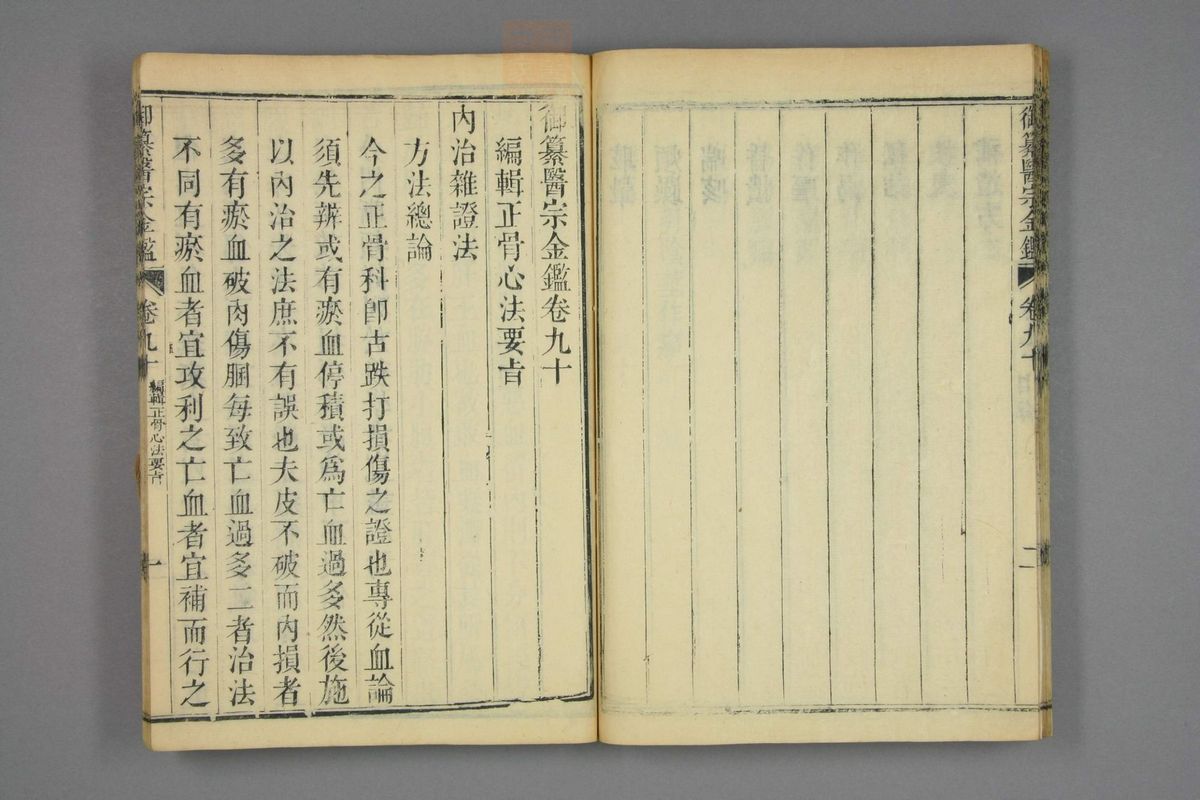 御纂醫宗金鑑 卷九十 二
御纂醫宗金鑑卷九十
編輯正骨心法要旨
內治雜證法
方法總論
今之正骨科卽古跌打損傷之證也專從血論
須先辨或有瘀血停積或爲亡血過多然後施
以內治之法庶不有誤也夫皮不破而內損者
多有瘀血破肉傷䐃每致亡血過多二者治法
不同有瘀血者宜攻利之亡血者宜補而行之
御纂醫宗金鑑 卷九十 編輯正骨心法要旨 一